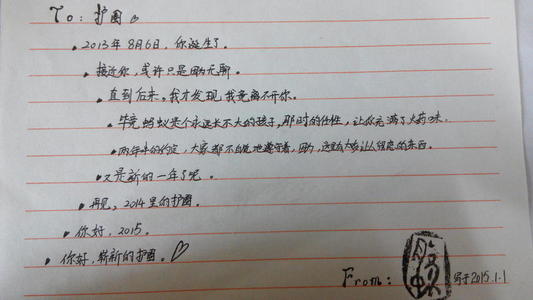 To: 护圈
• 2013年8月6日，你诞生了。
• 接近你，或许只是因为无聊。
• 直到后来，我才发现，我竟离不开你。
• 毕竟蚂蚁是个永远长不大的孩子，那时的任性，让你充满了火药味。
• 两年来的约定，大家都不自觉地遵守着，因为，这里有太多让人留恋的东西。
• 又是新的一年了呢。
• 再见，2014里的护圈。
• 你好，2015。
• 你好，崭新的护圈。
From: 写于2015.1.1